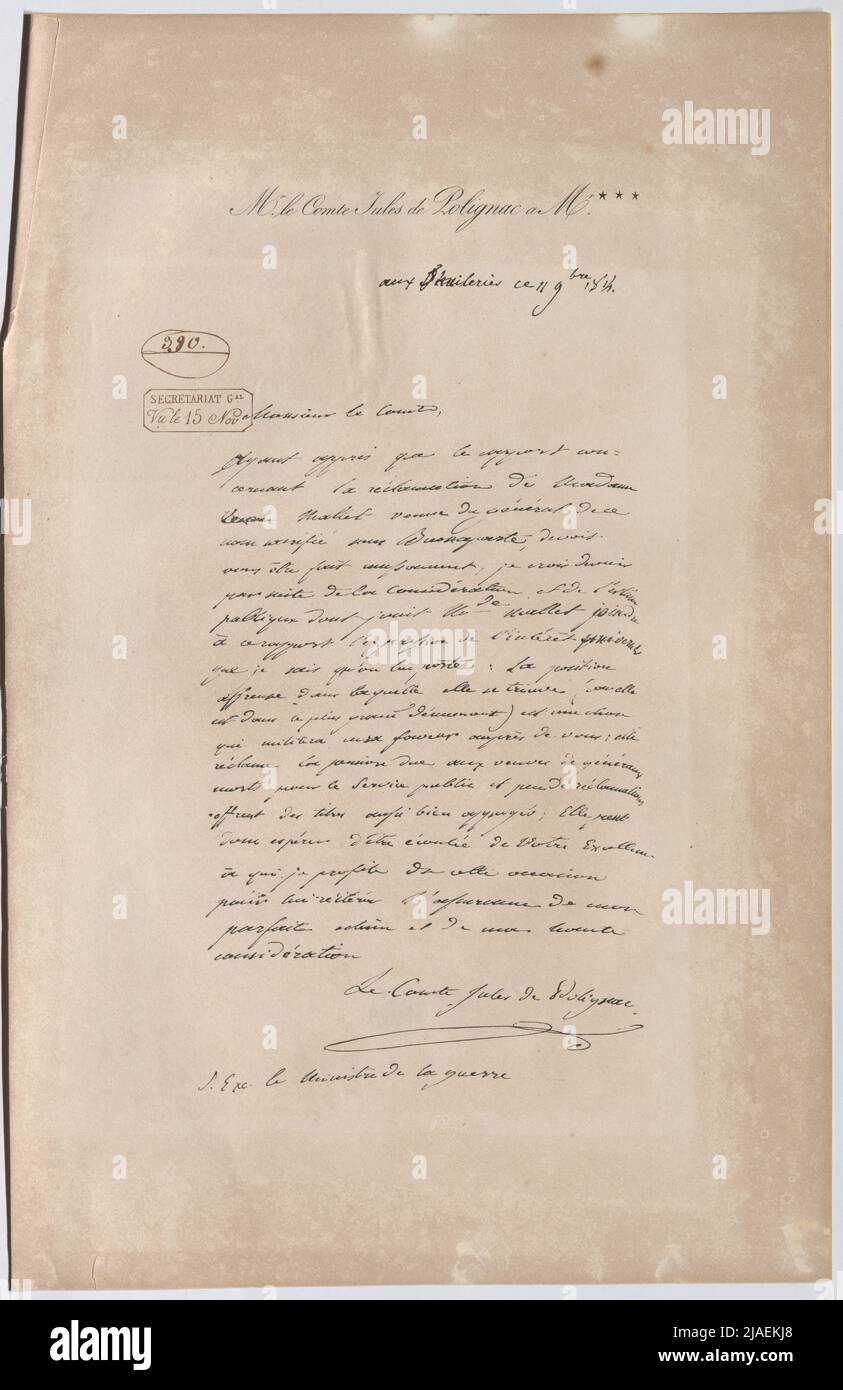 Mr. le Comte Jules de Polignac a Mr. ***
aux Thuileries ce 11 9bre 1814.
390.
SECRETARIAT Gal
Vu le 15 Nov
Monsieur le Comte,
Ayant appris que le rapport con-
cernant la réclamation de Madame
Mallet veuve du général de ce
nom sacrifié sous Buonaparte, devois
vous être fait incessament, je crois devoir
par suite de la considération et de l'estime
publique dont jouit Mde Mallet joindre
à ce rapport l'expression de l'intérêt
que je sais qu'on lui porte : La position
affreuse dans laquelle elle se trouve (car elle
est dans le plus grand dénuement) est une chose
qui militera en sa faveur auprès de vous ; elle
réclame la pension due aux veuves de généraux
morts pour le service public et peu de réclamations
offrent des titres aussi bien appuyés ; Elle peut
donc espérer d'être écoutée de Votre Excellence
à qui je profite de cette occasion
pour lui réitérer l'assurance de mon
parfait estime et de ma haute
considération
Le Comte Jules de Polignac.
S. Exc. le Ministre de la guerre
alamy
Image ID: 2JAEKJ8
www.alamy.com